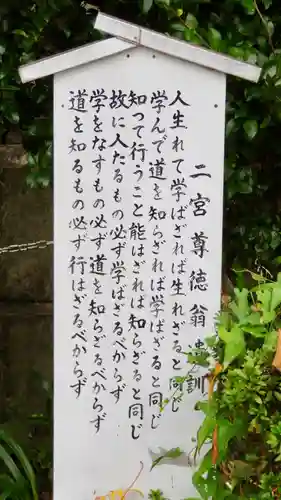 二宮尊徳翁 訓
人生れて学ばざれば生れざると同じ
学んで道を知らざれば学ばざると同じ
知って行うこと能はざれば知らざると同じ
故に人たるもの必ず学ばざるべからず
学をなすもの必ず道を知らざるべからず
道を知るもの必ず行はざるべからず